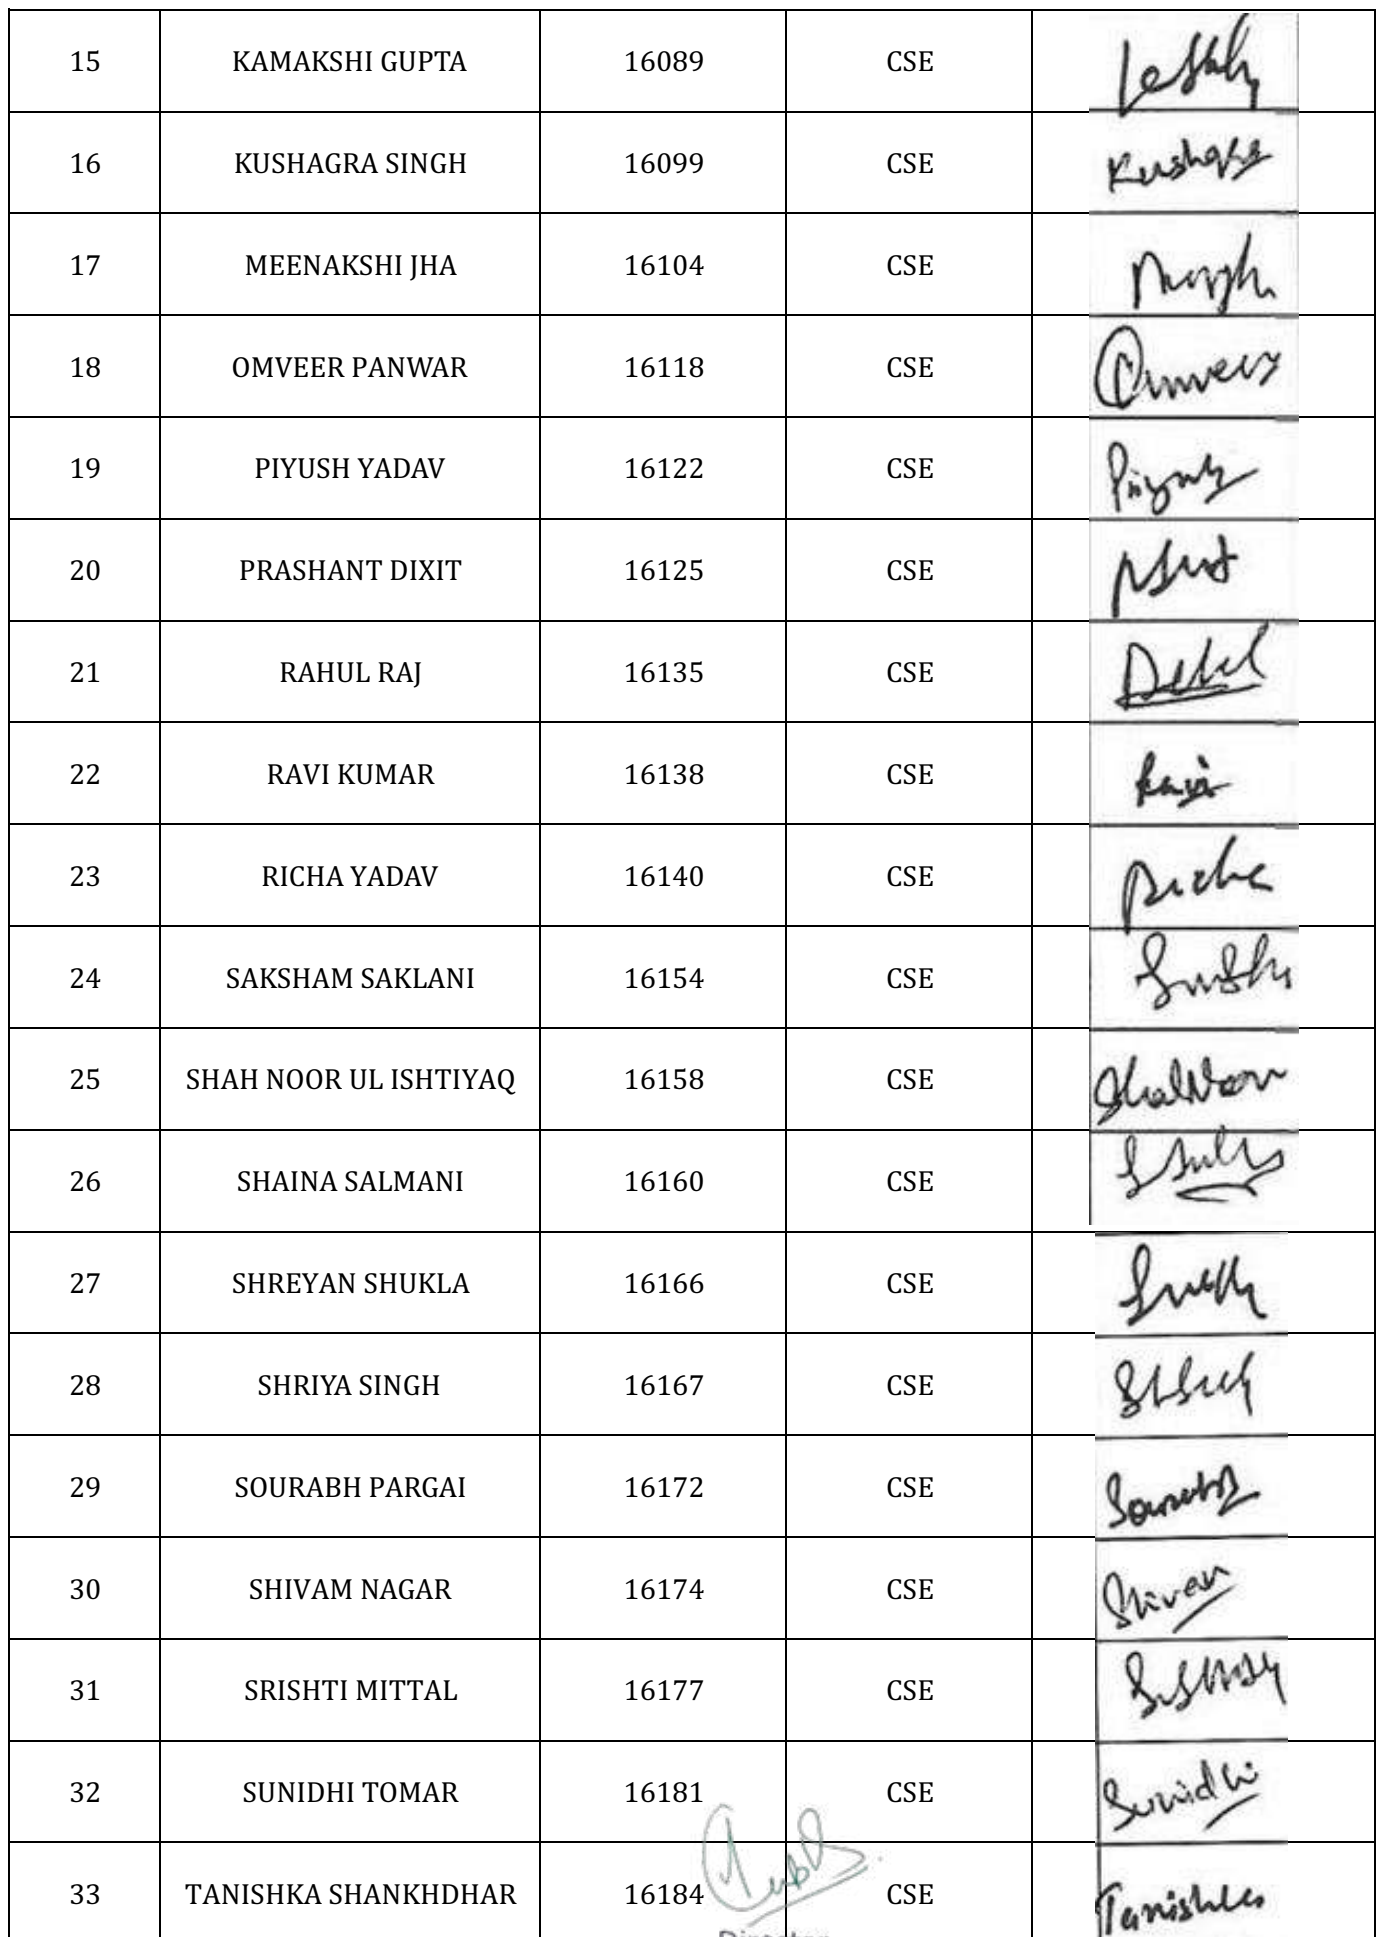 15 KAMAKSHI GUPTA 16089 CSE
16 KUSHAGRA SINGH 16099 CSE Kushagra
17 MEENAKSHI JHA 16104 CSE
18 OMVEER PANWAR 16118 CSE Omveer
19 PIYUSH YADAV 16122 CSE Piyush
20 PRASHANT DIXIT 16125 CSE
21 RAHUL RAJ 16135 CSE
22 RAVI KUMAR 16138 CSE Ravi
23 RICHA YADAV 16140 CSE Richa
24 SAKSHAM SAKLANI 16154 CSE
25 SHAH NOOR UL ISHTIYAQ 16158 CSE ShahNoor
26 SHAINA SALMANI 16160 CSE
27 SHREYAN SHUKLA 16166 CSE
28 SHRIYA SINGH 16167 CSE
29 SOURABH PARGAI 16172 CSE Sourabh
30 SHIVAM NAGAR 16174 CSE Shivam
31 SRISHTI MITTAL 16177 CSE
32 SUNIDHI TOMAR 16181 CSE Sunidhi
33 TANISHKA SHANKHDHAR 16184 CSE Tanishka
Director